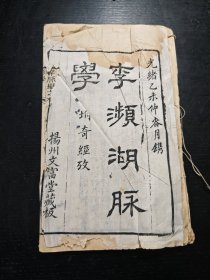 光緒乙未仲春月鐫
李瀕湖脉
學
奇經攷
揚州文富堂藏板